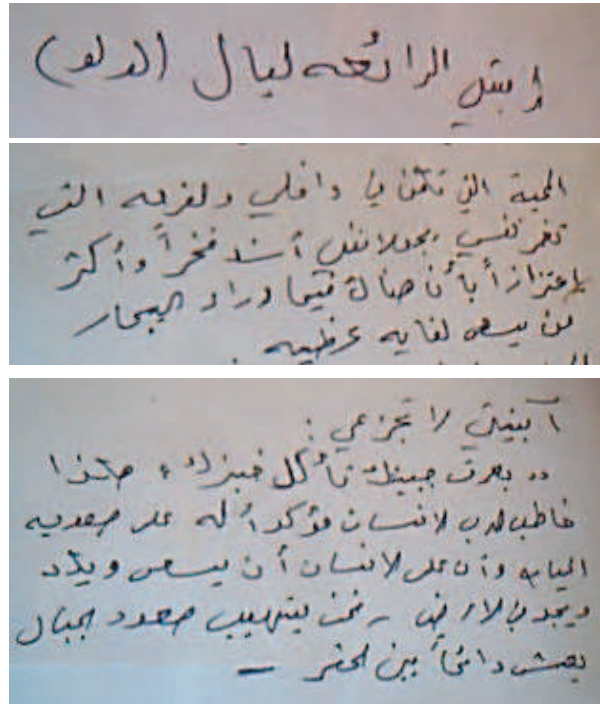 إبنتي الرائعه ليال (الدلو)
المحبة التي تكمن في داخلي ولفرحه التي
تغمر نفسي يجعلانني أشد فخراً وأكثر
إعتزازاً بأن هناك فيما وراء البحار
من يسعى لغايه عظيمه
آبنيتي لا تجزعي :
"بعرق جبينك تأكل خبزك" هكذا
خاطب لرب لانسان مؤكداً له على صعوبه
الحياه وأن على لانسان أن يسعى ويكد
ويجد في لارض - فمن يتهيب صعود الجبال
يعش دائماً بين الحفر -